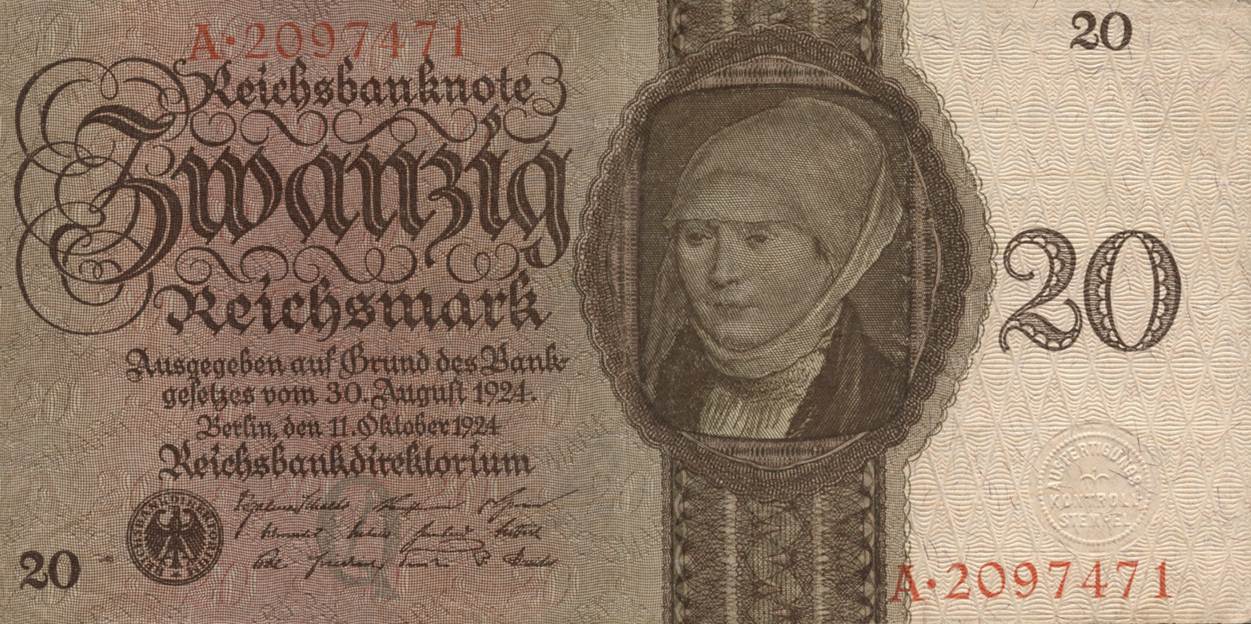 A·2097471
20
Reichsbanknote
Zwanzig
Reichsmark
20
Ausgegeben auf Grund des Bank-
gesetzes vom 30. August 1924.
Berlin, den 11. Oktober 1924
Reichsbankdirektorium
AUSFERTIGUNGS
KONTROLL
STEMPEL
20
A·2097471